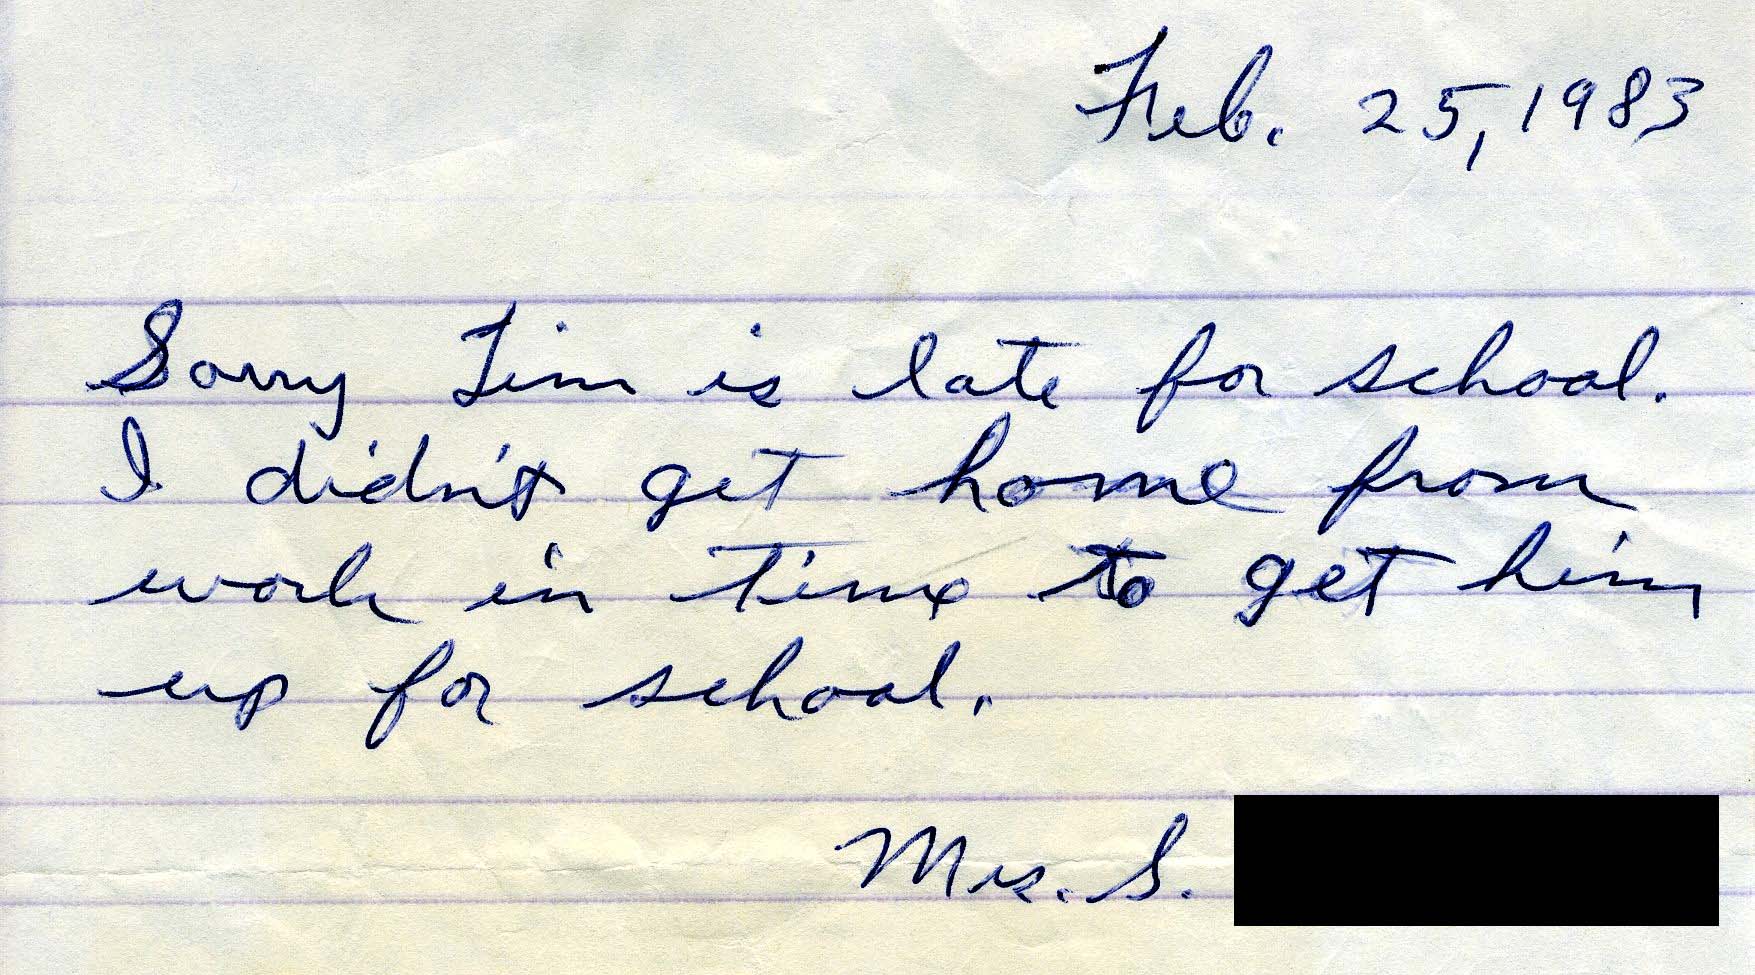 Feb. 25, 1983
Sorry Tim is late for school.
I didn't get home from
work in time to get him
up for school.
Mrs. S.